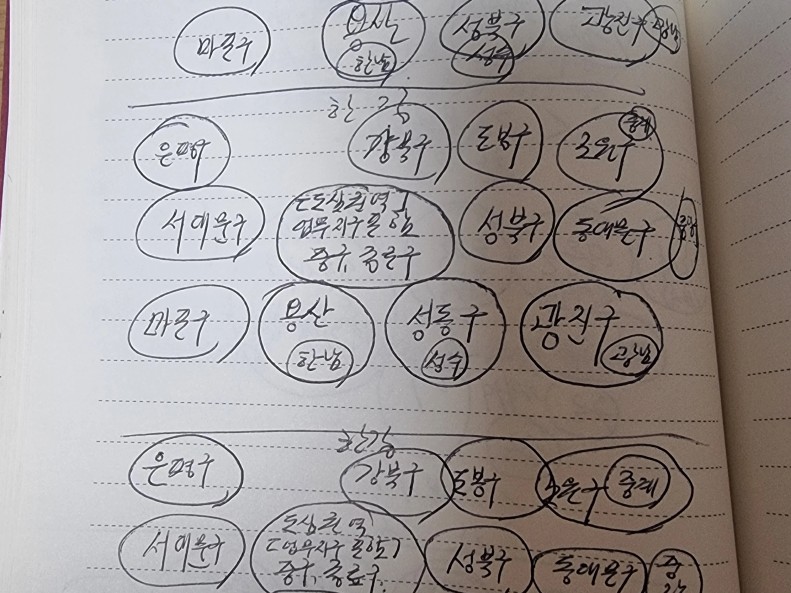 마포구 용산 성북구 광진구 광남
한남 성수
한강
은평구 강북구 도봉구 노원구 중계
서대문구 도심권역 성북구 동대문구 중랑
업무지구포함
중구, 종로구
마포구 용산 성동구 광진구
한남 성수 광남
한강
은평구 강북구 도봉구 노원구 중계
서대문구 도심권역 성북구 동대문구 중랑
(업무지구포함)
중구, 종로구